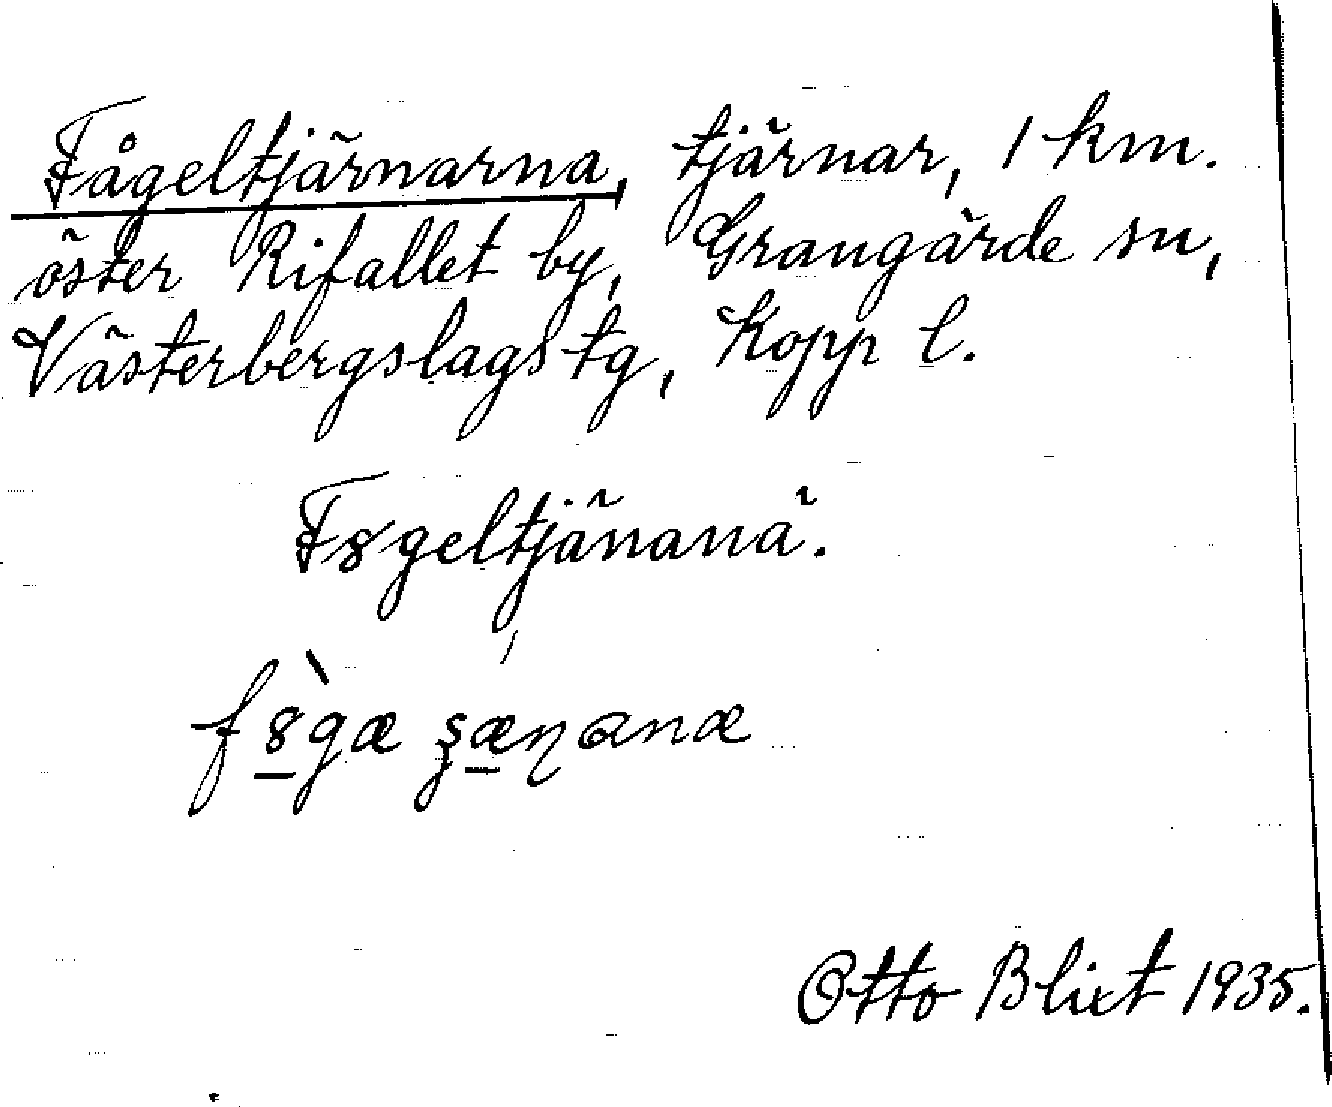 Fågeltjärnarna, tjärnar, 1 km.
öster Rifallet by, Grangärde sn,
Västerbergslags tg, Kopp l.
F8geltjänanä.
f8̀gæ ʂæɳɑnæ
Otto Blixt 1935.